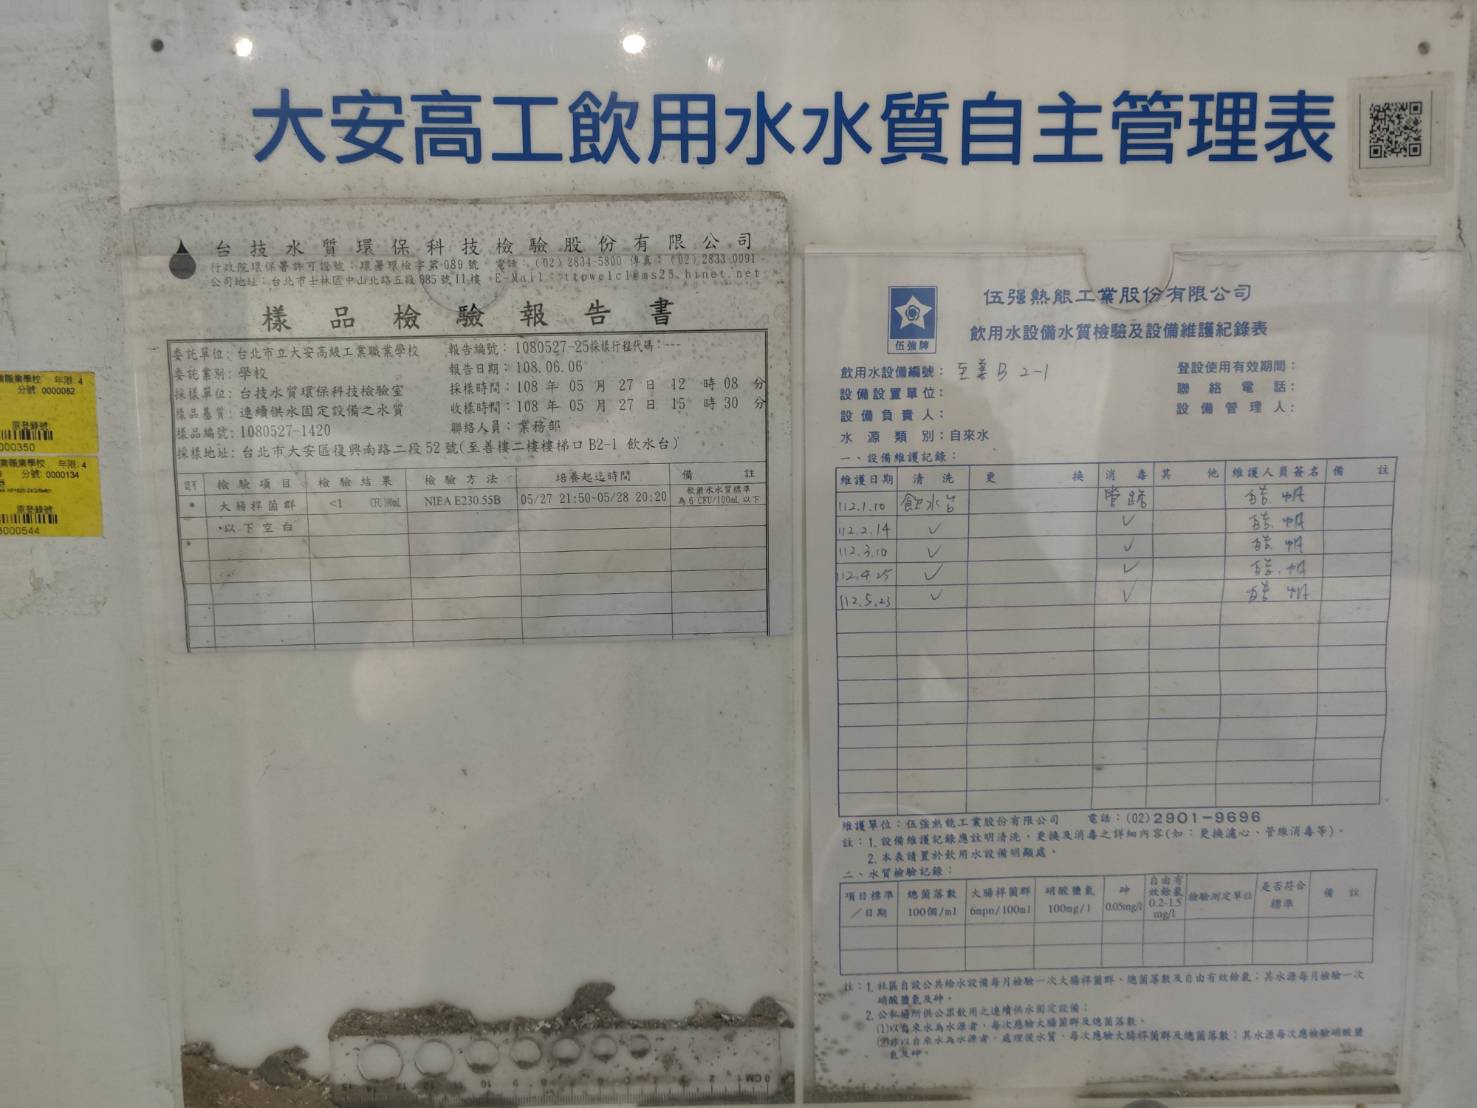 大安高工飲用水水質自主管理表
台技水質環保科技檢驗股份有限公司
行政院環保署許可證號：環署環檢字第089號 電話：(02)2834-5800 傳真：(02)2833-0091
公司地址：台北市士林區中山北路五段685號11樓 E-Mail：ttpwclcl@ms25.hinet.net
樣品檢驗報告書
委託單位：台北市立大安高級工業職業學校 報告編號：1080527-25 採樣行程代碼：---
委託業別：學校 報告日期：108.06.06
採樣單位：台技水質環保科技檢驗室 採樣時間：108 年 05 月 27 日 12 時 08 分
樣品基質：連續供水固定設備之水質 收樣時間：108 年 05 月 27 日 15 時 30 分
樣品編號：1080527-1420 聯絡人員：業務部
採樣地址：台北市大安區復興南路二段52號(至善樓二樓樓梯口B2-1 飲水台)
檢驗項目 檢驗結果 檢驗方法 培養起迄時間 備註
* 大腸桿菌群 <1 CFU/100mL NIEA E230.55B 05/27 21:50-05/28 20:20 飲用水水質標準為6 CFU/100mL以下
*以下空白
*
伍強牌
伍强熱能工業股份有限公司
飲用水設備水質檢驗及設備維護紀錄表
飲用水設備編號：至善B 2-1 登設使用有效期間：
設備設置單位： 聯絡電話：
設備負責人： 設備管理人：
水源類別：自來水
一、設備維護記錄：
維護日期 清洗 更換 消毒 其他 維護人員簽名 備註
112.1.10 飲水台 管路
112.2.14 ✓ ✓
112.3.10 ✓ ✓
112.4.25 ✓ ✓
112.5.23 ✓ ✓
維護單位：伍強熱能工業股份有限公司 電話：(02)2901-9696
註：1.設備維護記錄應註明清洗、更換及消毒之詳細內容(如：更換濾心、管線消毒等)。
2.本表請置於飲用水設備明顯處。
二、水質檢驗記錄：
項目標準／日期 總菌落數100個/ml 大腸桿菌群6mpn/100ml 硝酸鹽氮100mg/l 砷0.05mg/l 自由有效餘氯0.2-1.5mg/l 檢驗測定單位 是否符合標準 備註
註：1.社區自設公共給水設備每月檢驗一次大腸桿菌群、總菌落數及自由有效餘氯；其水源每月檢驗一次
硝酸鹽氮及砷。
2.公私場所供公眾飲用之連續供水固定設備：
(1)以自來水為水源者，每次應驗大腸菌群及總菌落數。
(2)非以自來水為水源者，處理後水質，每次應驗大腸桿菌群及總菌落數；其水源每次應檢驗硝酸鹽
氮及砷。
業職業學校 年限:4
分號 0000082
原登錄號
000350
業職業學校 年限:4
分號: 0000134
原登錄號
3000544